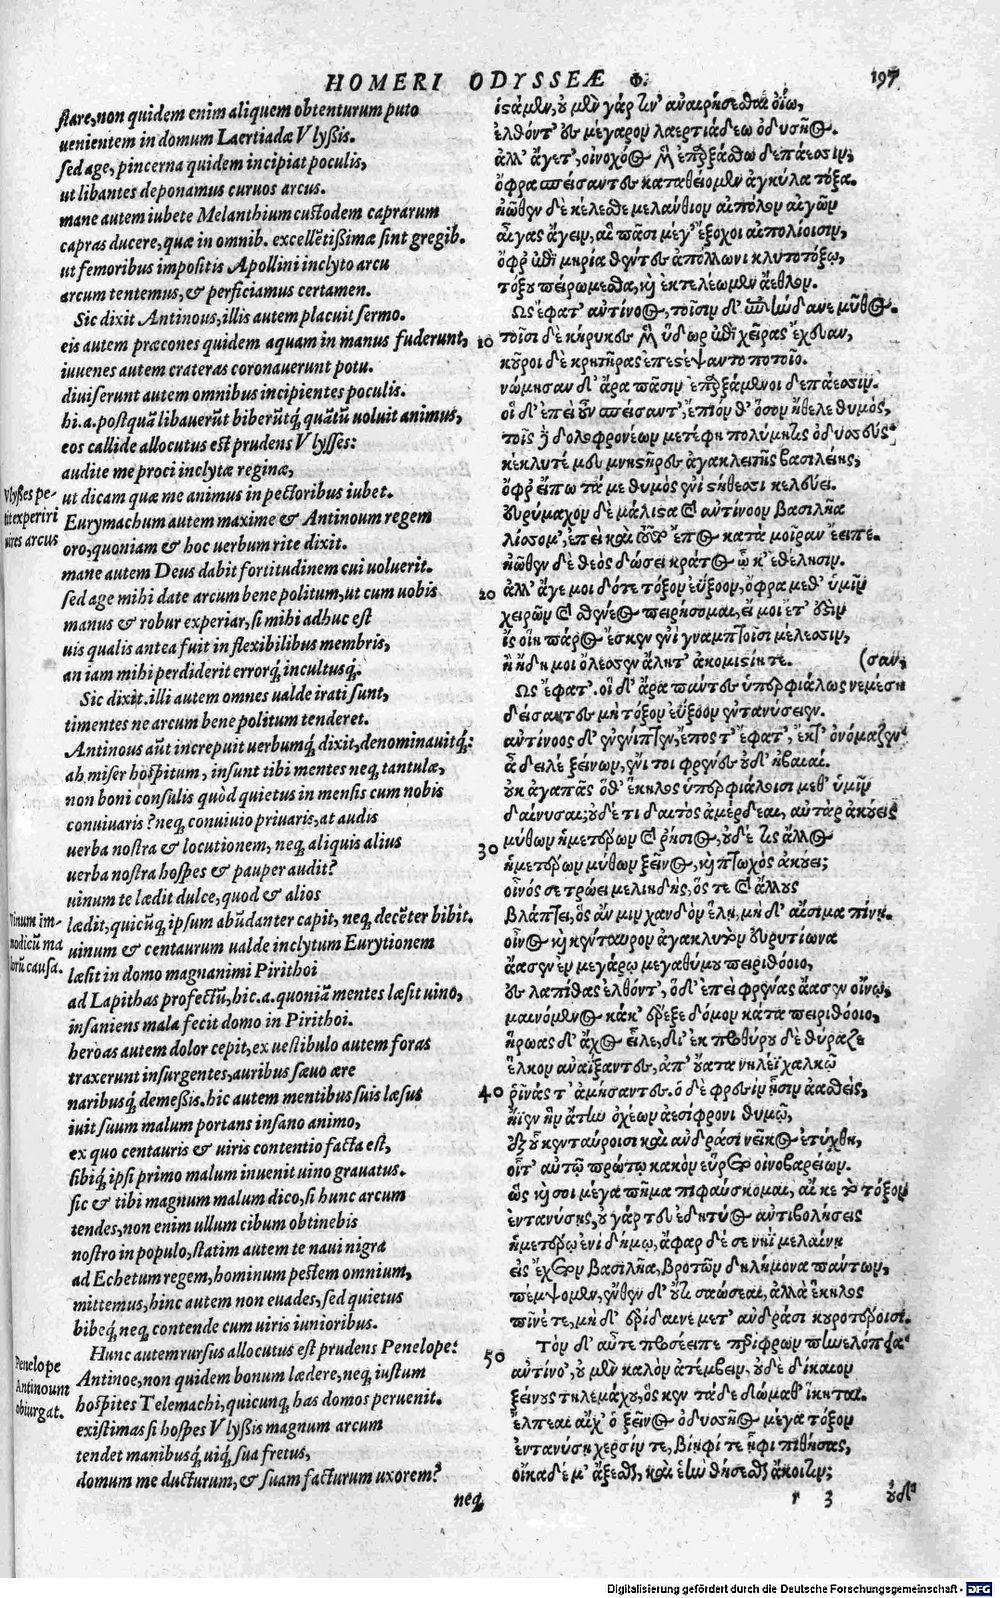 HOMERI ODYSSEÆ Φ. 197
stare, non quidem enim aliquem obtenturum puto
uenientem in domum Laertiadæ Vlyßis.
sed age, pincerna quidem incipiat poculis,
ut libantes deponamus curuos arcus.
mane autem iubete Melanthium custodem caprarum
capras ducere, quæ in omnib. excellētißimæ sint gregib.
ut femoribus impositis Apollini inclyto arcu
arcum tentemus, & perficiamus certamen.
Sic dixit Antinous, illis autem placuit sermo.
eis autem præcones quidem aquam in manus fuderunt,
iuuenes autem crateras coronauerunt potu.
diuiserunt autem omnibus incipientes poculis.
hi.a. postquā libauerūt biberūtq́, quātū uoluit animus,
eos callide allocutus est prudens Vlysses:
audite me proci inclytæ reginæ,
ut dicam quæ me animus in pectoribus iubet.
Eurymachum autem maxime & Antinoum regem
oro, quoniam & hoc uerbum rite dixit.
mane autem Deus dabit fortitudinem cui uoluerit.
sed age mihi date arcum bene politum, ut cum uobis
manus & robur experiar, si mihi adhuc est
uis qualis antea fuit in flexibilibus membris,
an iam mihi perdiderit errorq́, incultusq́.
Sic dixit. illi autem omnes ualde irati sunt,
timentes ne arcum bene politum tenderet.
Antinous aūt increpuit uerbumq́, dixit, denominauitq́:
ah miser hospitum, insunt tibi mentes neq, tantulæ,
non boni consulis quòd quietus in mensis cum nobis
conuiuaris? neq, conuiuio priuaris, at audis
uerba nostra & locutionem, neq, aliquis alius
uerba nostra hospes & pauper audit?
uinum te lædit dulce, quod & alios
lædit, quicūq, ipsum abūdanter capit, neq, decēter bibit.
uinum & centaurum ualde inclytum Eurytionem
læsit in domo magnanimi Pirithoi
ad Lapithas profectū, hic.a. quoniā mentes læsit uino,
insaniens mala fecit domo in Pirithoi.
heroas autem dolor cepit, ex uestibulo autem foras
traxerunt insurgentes, auribus sæuo ære
naribusq́, demeßis. hic autem mentibus suis læsus
iuit suum malum portans insano animo,
ex quo centauris & uiris contentio facta est,
sibiq́, ipsi primo malum inuenit uino grauatus.
sic & tibi magnum malum dico, si hunc arcum
tendes, non enim ullum cibum obtinebis
nostro in populo, statim autem te naui nigra
ad Echetum regem, hominum pestem omnium,
mittemus, hinc autem non euades, sed quietus
bibeq́, neq, contende cum uiris iunioribus.
Hunc autem rursus allocutus est prudens Penelope:
Antinoe, non quidem bonum lædere, neq, iustum
hospites Telemachi, quicunq, has domos peruenit.
existimas si hospes Vlyßis magnum arcum
tendet manibusq́, uiq́, sua fretus,
domum me ducturum, & suam facturum uxorem?
neq,
Vlyßes pe-
tit experiri
uires arcus
Vinum im-
modicū ma
lorū causa.
Penelope
Antinoum
obiurgat.
ἱστάμεν, οὐ μὲν γάρ τιν' ἀναιρήσεσθαι ὀΐω,
ἐλθόντ' ἐς μέγαρον λαερτιάδεω ὀδυσῆος.
ἀλλ' ἄγετ', οἰνοχόος μὲν ἐπαρξάσθω δεπάεσσιν,
ὄφρα σπείσαντες καταθείομεν ἀγκύλα τόξα.
ἠῶθεν δὲ κέλεσθε μελάνθιον αἰπόλον αἰγῶν
αἶγας ἄγειν, αἳ πᾶσι μέγ' ἔξοχοι αἰπολίοισιν,
ὄφρ' ἐπὶ μηρία θέντες ἀπόλλωνι κλυτοτόξῳ,
τόξου πειρώμεσθα, καὶ ἐκτελέωμεν ἄεθλον.
Ὣς ἔφατ' ἀντίνοος, τοῖσιν δ' ἐπιήνδανε μῦθος.
10 τοῖσι δὲ κήρυκες μὲν ὕδωρ ἐπὶ χεῖρας ἔχευαν,
κοῦροι δὲ κρητῆρας ἐπεστέψαντο ποτοῖο.
νώμησαν δ' ἄρα πᾶσιν ἐπαρξάμενοι δεπάεσσιν.
οἱ δ' ἐπεὶ οὖν σπείσαντ', ἔπιόν θ' ὅσον ἤθελε θυμός,
τοῖς δὲ δολοφρονέων μετέφη πολύμητις ὀδυσσεύς,
κέκλυτέ μευ μνηστῆρες ἀγακλειτῆς βασιλείης,
ὄφρ' εἴπω τά με θυμὸς ἐνὶ στήθεσσι κελεύει.
εὐρύμαχον δὲ μάλιστα καὶ ἀντίνοον βασιλῆα
λίσσομ', ἐπεὶ καὶ τοῦτο ἔπος κατὰ μοῖραν ἔειπε.
ἠῶθεν δὲ θεὸς δώσει κράτος ᾧ κ' ἐθέλησιν.
20 ἀλλ' ἄγε μοι δότε τόξον ἐΰξοον, ὄφρα μεθ' ὑμῖν
χειρῶν καὶ σθένεος πειρήσομαι, εἴ μοι ἔτ' ἐστὶν
ἲς οἵη πάρος ἔσκεν ἐνὶ γναμπτοῖσι μέλεσσιν,
ἢ ἤδη μοι ὄλεσσεν ἄλητ' ἀκομιστίη τε. (σαν,
Ὣς ἔφατ'. οἱ δ' ἄρα πάντες ὑπερφιάλως νεμέση
δείσαντες μὴ τόξον ἐΰξοον ἐντανύσειεν.
ἀντίνοος δ' ἐνένιπτεν, ἔπος τ' ἔφατ', ἔκ τ' ὀνόμαζεν·
ἆ δειλὲ ξείνων, ἔνι τοι φρένες οὐδ' ἠβαιαί.
οὐκ ἀγαπᾷς ὅθ' ἕκηλος ὑπερφιάλοισι μεθ' ὑμῖν
δαίνυσαι; οὐδέ τι δαιτὸς ἀμέρδεαι, αὐτὰρ ἀκούεις
30 μύθων ἡμετέρων καὶ ῥήσιος, οὐδέ τις ἄλλος
ἡμετέρων μύθων ξεῖνος, καὶ πτωχὸς ἀκούει;
οἶνός σε τρώει μελιηδής, ὅς τε καὶ ἄλλους
βλάπτει, ὃς ἄν μιν χανδὸν ἕλῃ, μὴ δ' αἴσιμα πίνῃ.
οἶνος καὶ κένταυρον ἀγακλυτὸν εὐρυτίωνα
ἄασεν ἐν μεγάρῳ μεγαθύμου πειριθόοιο,
ἐς λαπίθας ἐλθόντ', ὁ δ' ἐπεὶ φρένας ἄασεν οἴνῳ,
μαινόμενος κάκ' ἔρεξε δόμον κάτα πειριθόοιο,
ἥρωας δ' ἄχος εἷλε, δι' ἐκ προθύρου δὲ θύραζε
ἕλκον ἀναΐξαντες, ἀπ' οὔατα νηλέϊ χαλκῷ
40 ῥῖνάς τ' ἀμήσαντες. ὁ δὲ φρεσὶν ᾗσιν ἀασθείς,
ἤϊεν ἣν ἄτην ὀχέων ἀεσίφρονι θυμῷ,
ἐξ οὗ κενταύροισι καὶ ἀνδράσι νεῖκος ἐτύχθη,
οἷ τ' αὐτῷ πρώτῳ κακὸν εὕρετο οἰνοβαρείων.
ὣς καὶ σοὶ μέγα πῆμα πιφαύσκομαι, αἴ κε τὸ τόξον
ἐντανύσῃς, οὐ γάρ τευ ἐδητύος ἀντιβολήσεις
ἡμετέρῳ ἐνὶ δήμῳ, ἄφαρ δέ σε νηῒ μελαίνῃ
εἰς ἔχετον βασιλῆα, βροτῶν δηλήμονα πάντων,
πέμψομεν, ἔνθεν δ' οὔτι σαώσεαι, ἀλλὰ ἕκηλος
πῖνέ τε, μὴ δ' ἐρίδαινε μετ' ἀνδράσι κουροτέροισι.
Τὸν δ' αὖτε προσέειπε περίφρων πηνελόπεια·
50 ἀντίνο', οὐ μὲν καλὸν ἀτέμβειν, οὐδὲ δίκαιον
ξείνους τηλεμάχου, ὅς κεν τάδε δώμαθ' ἵκηται.
ἔλπεαι αἴχ' ὁ ξεῖνος ὀδυσσῆος μέγα τόξον
ἐντανύσῃ χερσίν τε, βίηφί τε ἧφι πιθήσας,
οἴκαδέ μ' ἄξεσθαι, καὶ ἑὴν θήσεσθαι ἄκοιτιν;
r 3 οὐδ'
Digitalisierung gefördert durch die Deutsche Forschungsgemeinschaft - DFG